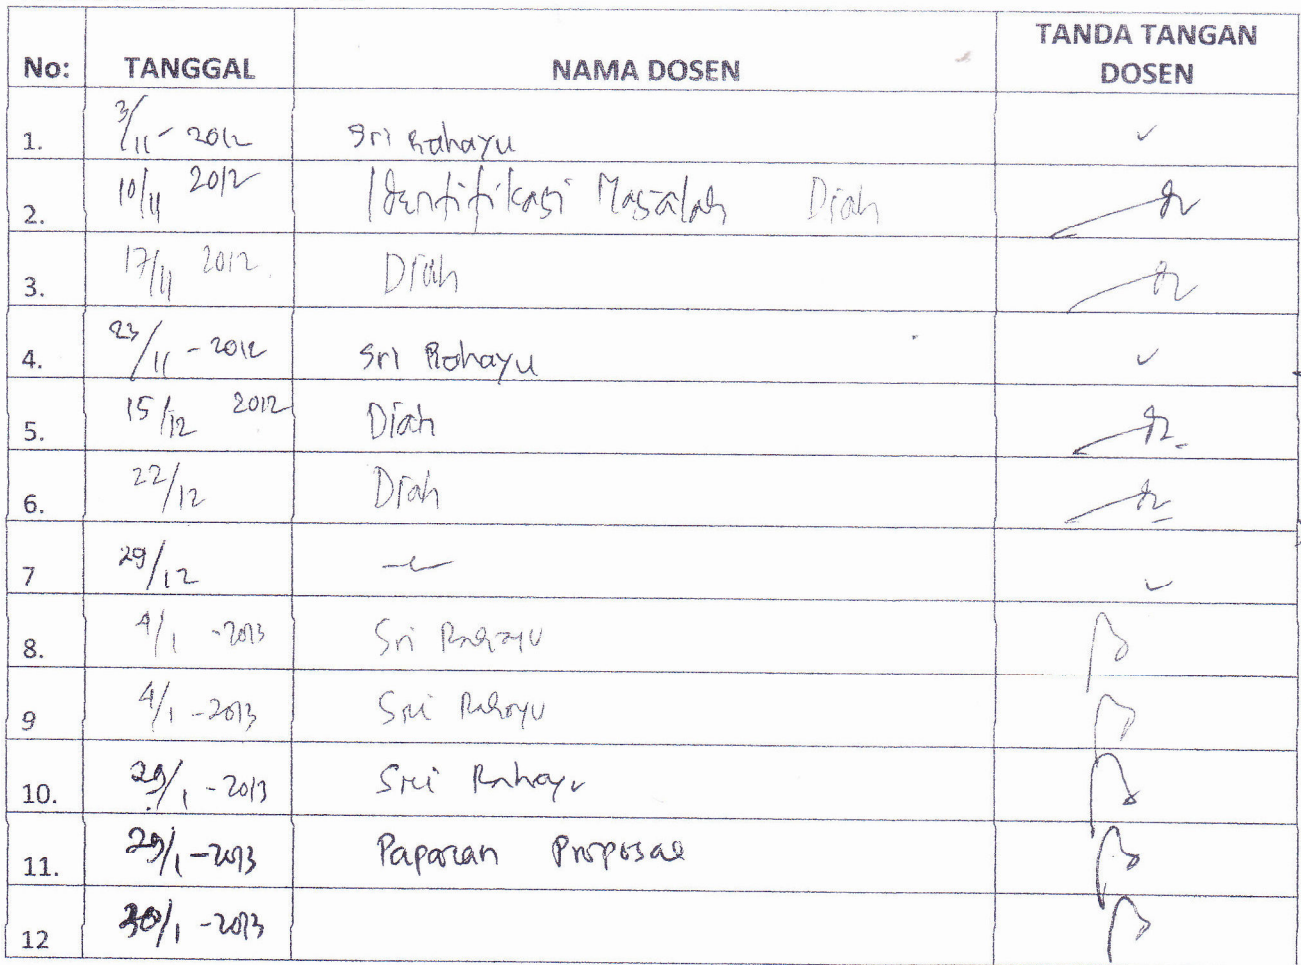 No: TANGGAL NAMA DOSEN TANDA TANGAN DOSEN
1. 3/11 - 2012 Sri Rahayu
2. 10/11 2012 Identifikasi Masalah Diah
3. 17/11 2012 Diah
4. 23/11 - 2012 Sri Rahayu
5. 15/12 2012 Diah
6. 22/12 Diah
7 29/12
8. 4/1 - 2013 Sri Rahayu
9 4/1 - 2013 Sri Rahayu
10. 29/1 - 2013 Sri Rahayu
11. 29/1 - 2013 Paparan Proposal
12 30/1 - 2013